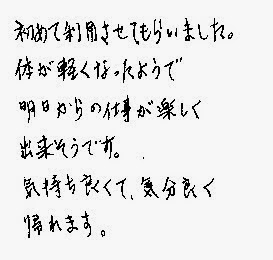 初めて利用させてもらいました。
体が軽くなったようで
明日からの仕事が楽しく
出来そうです。
気持ち良くて、気分良く
帰れます。